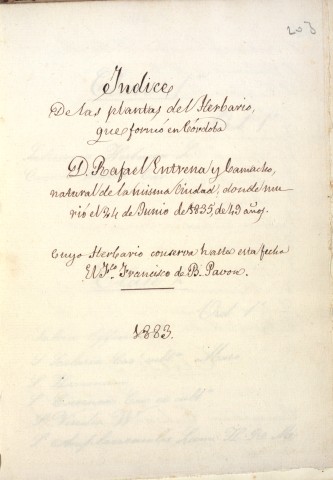 203
Índice
De las plantas del Herbario,
que formó en Córdoba
D. Rafael Entrena y Camacho,
natural de la misma Ciudad, donde mu
rió el 24 de Junio de 1835, de 49 años.
Cuyo Herbario conserva hasta esta fecha
El Francisco de B. Pavon.
1883.